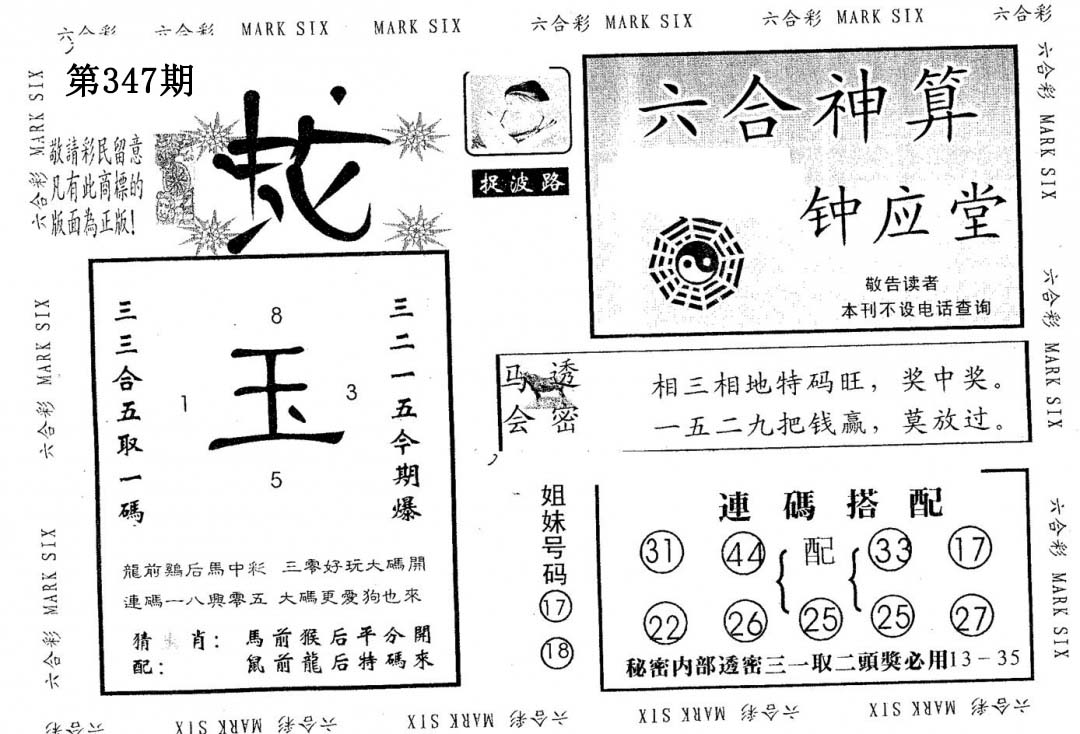 六合彩 六合彩 MARK SIX MARK SIX 六合彩 MARK SIX 六合彩 MARK SIX 六合彩
第347期
敬請彩民留意
凡有此商標的
版面為正版!
蛇
捉波路
六合神算
钟应堂
敬告读者
本刊不设电话查询
三三合五取一碼
8
1
玉
3
5
三二一五今期爆
龍前鷄后馬中彩 三零好玩大碼開
連碼一八與零五 大碼更愛狗也來
猜 肖: 馬前猴后平分開
配: 鼠前龍后特碼來
马会
透密
相三相地特码旺,奖中奖。
一五二九把钱赢,莫放过。
姐妹号码
17
18
連碼搭配
31 44 { 配 { 33 17
22 26 25 25 27
秘密内部透密三一取二頭獎必用13-35
六合彩 MARK SIX 六合彩 MARK SIX 六合彩 MARK SIX 六合彩 MARK SIX
六合彩 MARK SIX 六合彩 MARK SIX 六合彩 MARK SIX
六合彩 MARK SIX 六合彩 MARK SIX 六合彩 MARK SIX 六合彩 MARK SIX 六合彩